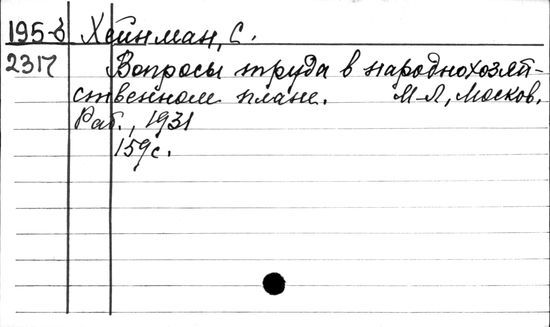 195-б Хейнман, С.
2317 Вопросы труда в народнохозяй-
ственном плане. М-Л, Москов.
Раб., 1931
159с.